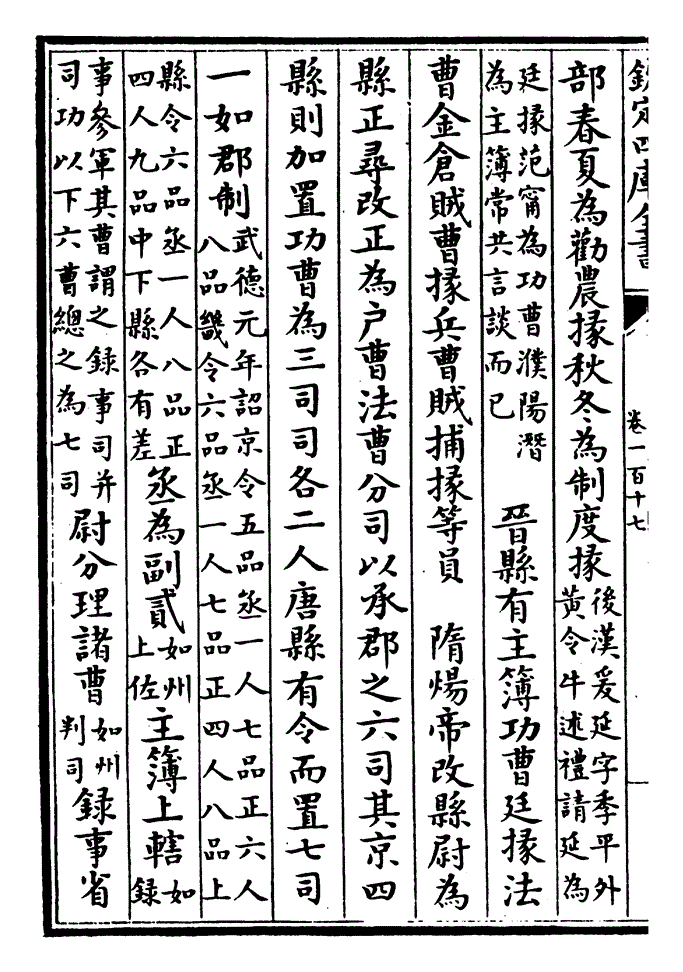 欽定四庫全書 卷一百十七
部春夏為勸農掾秋冬為制度掾後漢爰延字季平外黃令牛述禮請延為
廷掾范甯為功曹濮陽潛為主簿常共言談而已 晉縣有主簿功曹廷掾法
曹金倉賊曹掾兵曹賊捕掾等員 隋煬帝改縣尉為
縣正尋改正為户曹法曹分司以承郡之六司其京四
縣則加置功曹為三司司各二人唐縣有令而置七司
一如郡制武德元年詔京令五品丞一人七品正六人八品畿令六品丞一人七品正四人八品上
縣令六品丞一人八品正四人九品中下縣各有差丞為副貳如州上佐主簿上轄如録
事參軍其曹謂之録事司并司功以下六曹總之為七司尉分理諸曹如州判司録事省